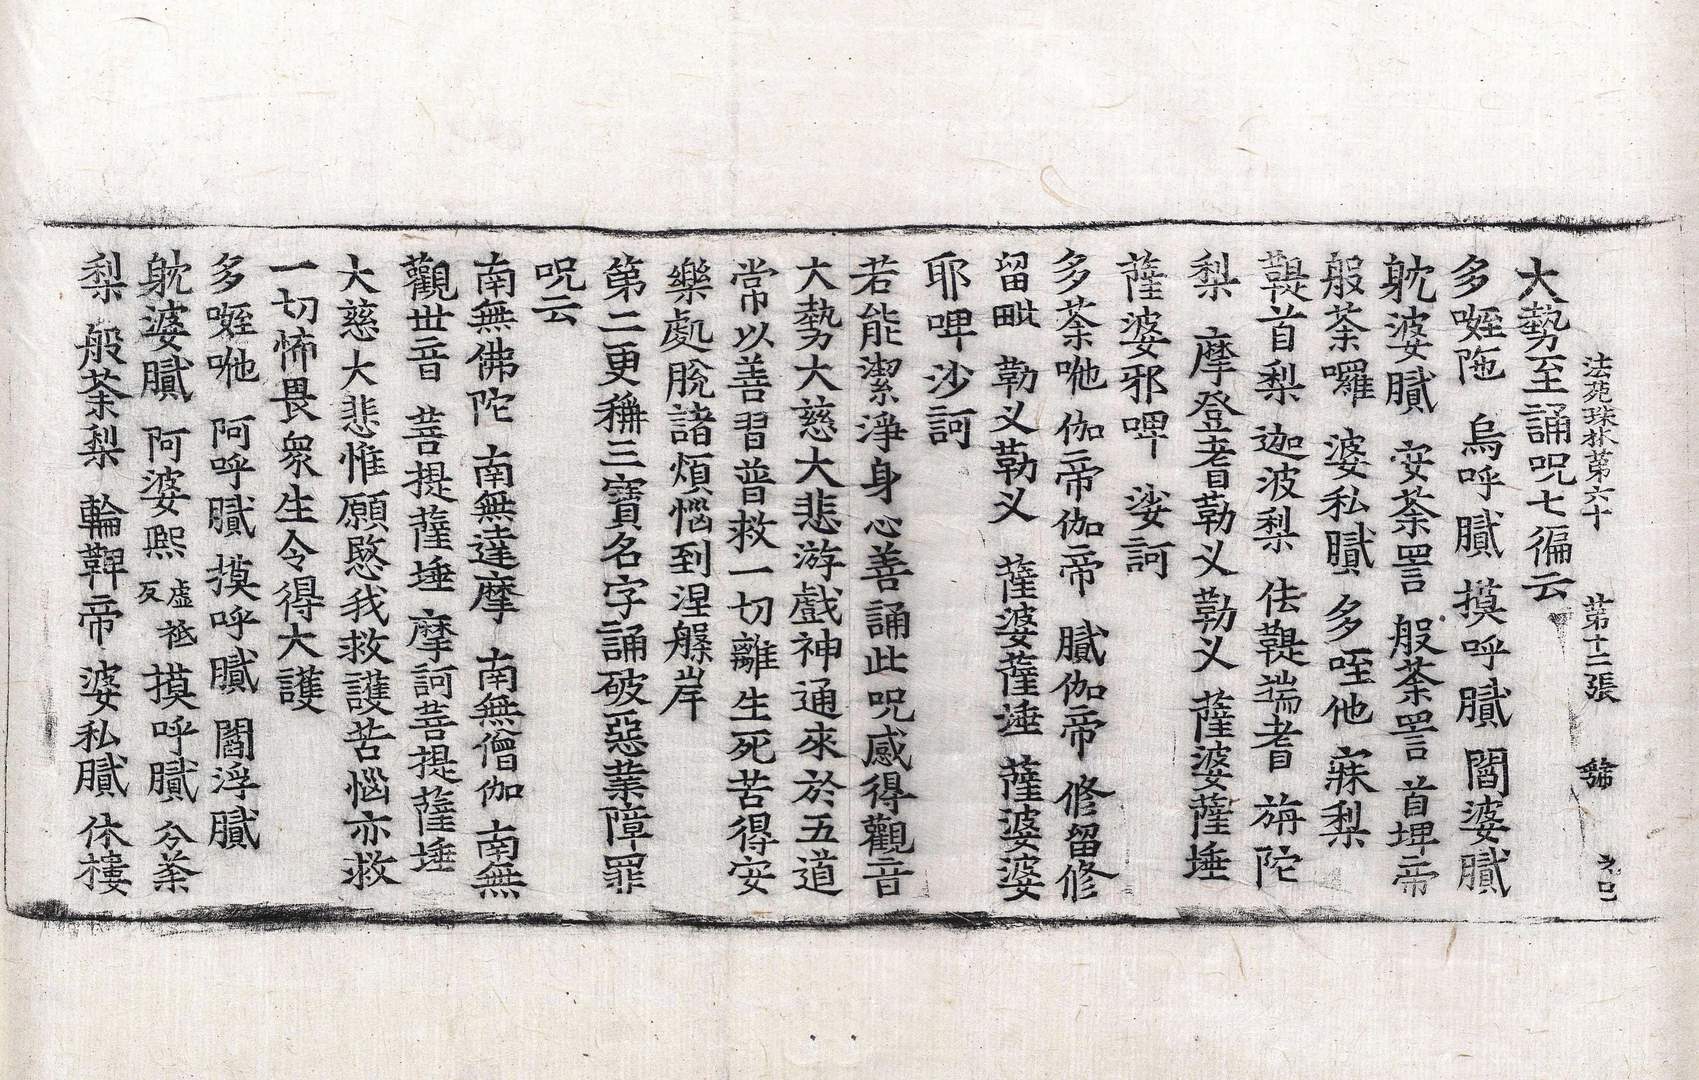 法苑珠林第六十 第十二張 號
大勢至誦呪七徧云
多㗌陁 烏呼膩 摸呼膩 閻婆膩
躭婆膩 安荼詈 般荼詈 首埤帝
般荼囉 婆私膩 多咥他 寐梨
鞮首梨 迦波梨 佉鞮端耆 旃陀
梨 摩登耆勒义勒义 薩婆薩埵
薩婆邪啤 娑訶
多荼咃伽帝伽帝 膩伽帝 修留修
留毗 勒义勒义 薩婆薩埵 薩婆婆
耶啤沙訶
若能潔淨身心善誦此呪感得觀音
大勢大慈大悲游戲神通來於五道
常以善習普救一切離生死苦得安
樂處脫諸煩惱到涅槃岸
第二更稱三寶名字誦破惡業障罪
呪云
南無佛陀 南無達摩 南無僧伽 南無
觀世音 菩提薩埵 摩訶菩提薩埵
大慈大悲惟願愍我救護苦惱亦救
一切怖畏衆生令得大護
多㗌咃 阿呼膩 摸呼膩 閻浮膩
躭婆膩 阿婆熙 虛祇反 摸呼膩 分荼
梨 般荼梨 輪鞞帝 婆私膩 休樓